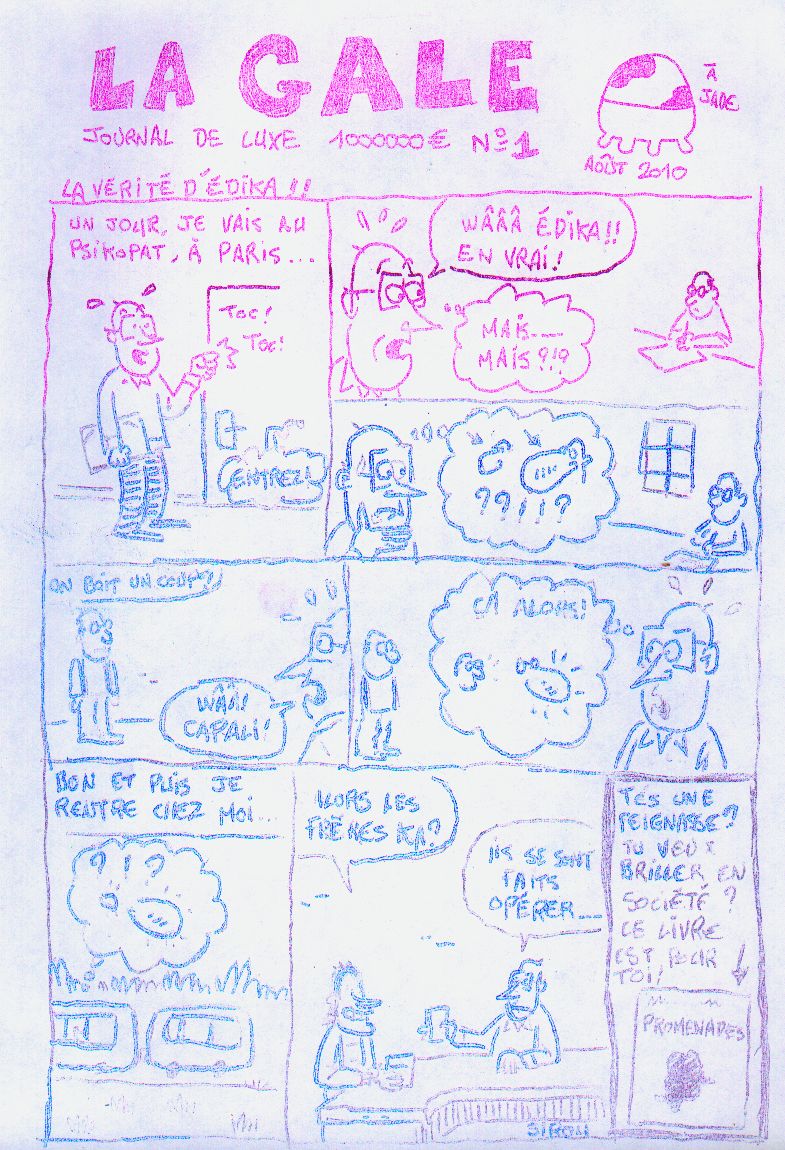 LA GALE
JOURNAL DE LUXE 1000000€ N°1
À
JADE
AOÛT 2010
LA VÉRITÉ D'ÉDIKA !!
UN JOUR, JE VAIS AU
PSIKOPAT, À PARIS...
TOC!
TOC!
ENTREZ!
WÂÂÂ ÉDIKA!!
EN VRAI!
MAIS...
MAIS?!?
??!!?
ON BOIT UN COUP?
WÂÂ!
CAPALI!
ÇA ALORS!
BON ET PUIS JE
RENTRE CHEZ MOI...
?!?
ALORS LES
FRÈRES KA?
ILS SE SONT
FAITS
OPÉRER...
T'ES UNE
FEIGNASSE?
TU VEUX
BRILLER EN
SOCIÉTÉ?
CE LIVRE
EST POUR
TOI!
PROMENADES
SIRON